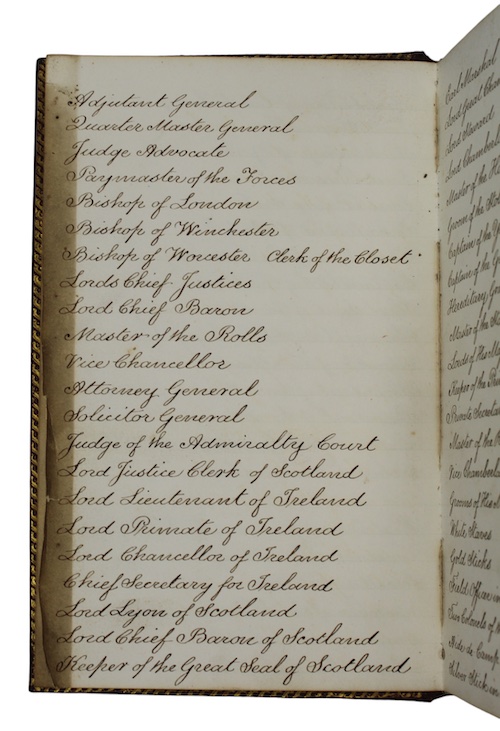 Adjutant General
Quarter Master General
Judge Advocate
Paymaster of the Forces
Bishop of London
Bishop of Winchester
Bishop of Worcester Clerk of the Closet
Lords Chief Justices
Lord Chief Baron
Master of the Rolls
Vice Chancellor
Attorney General
Solicitor General
Judge of the Admiralty Court
Lord Justice Clerk of Scotland
Lord Lieutenant of Ireland
Lord Primate of Ireland
Lord Chancellor of Ireland
Chief Secretary for Ireland
Lord Lyon of Scotland
Lord Chief Baron of Scotland
Keeper of the Great Seal of Scotland
Earl Marshal
Lord Great
Lord Steward
Lord
Master of the
Groom of the
Captain of the
Captain of the
Hereditary
Master of the
Lords of His
Keeper of the
Private
Master of the
Vice
Grooms of His
White Staves
Gold Sticks
Field Officer in
Two Colonels of
Aide de
Silver Stick in